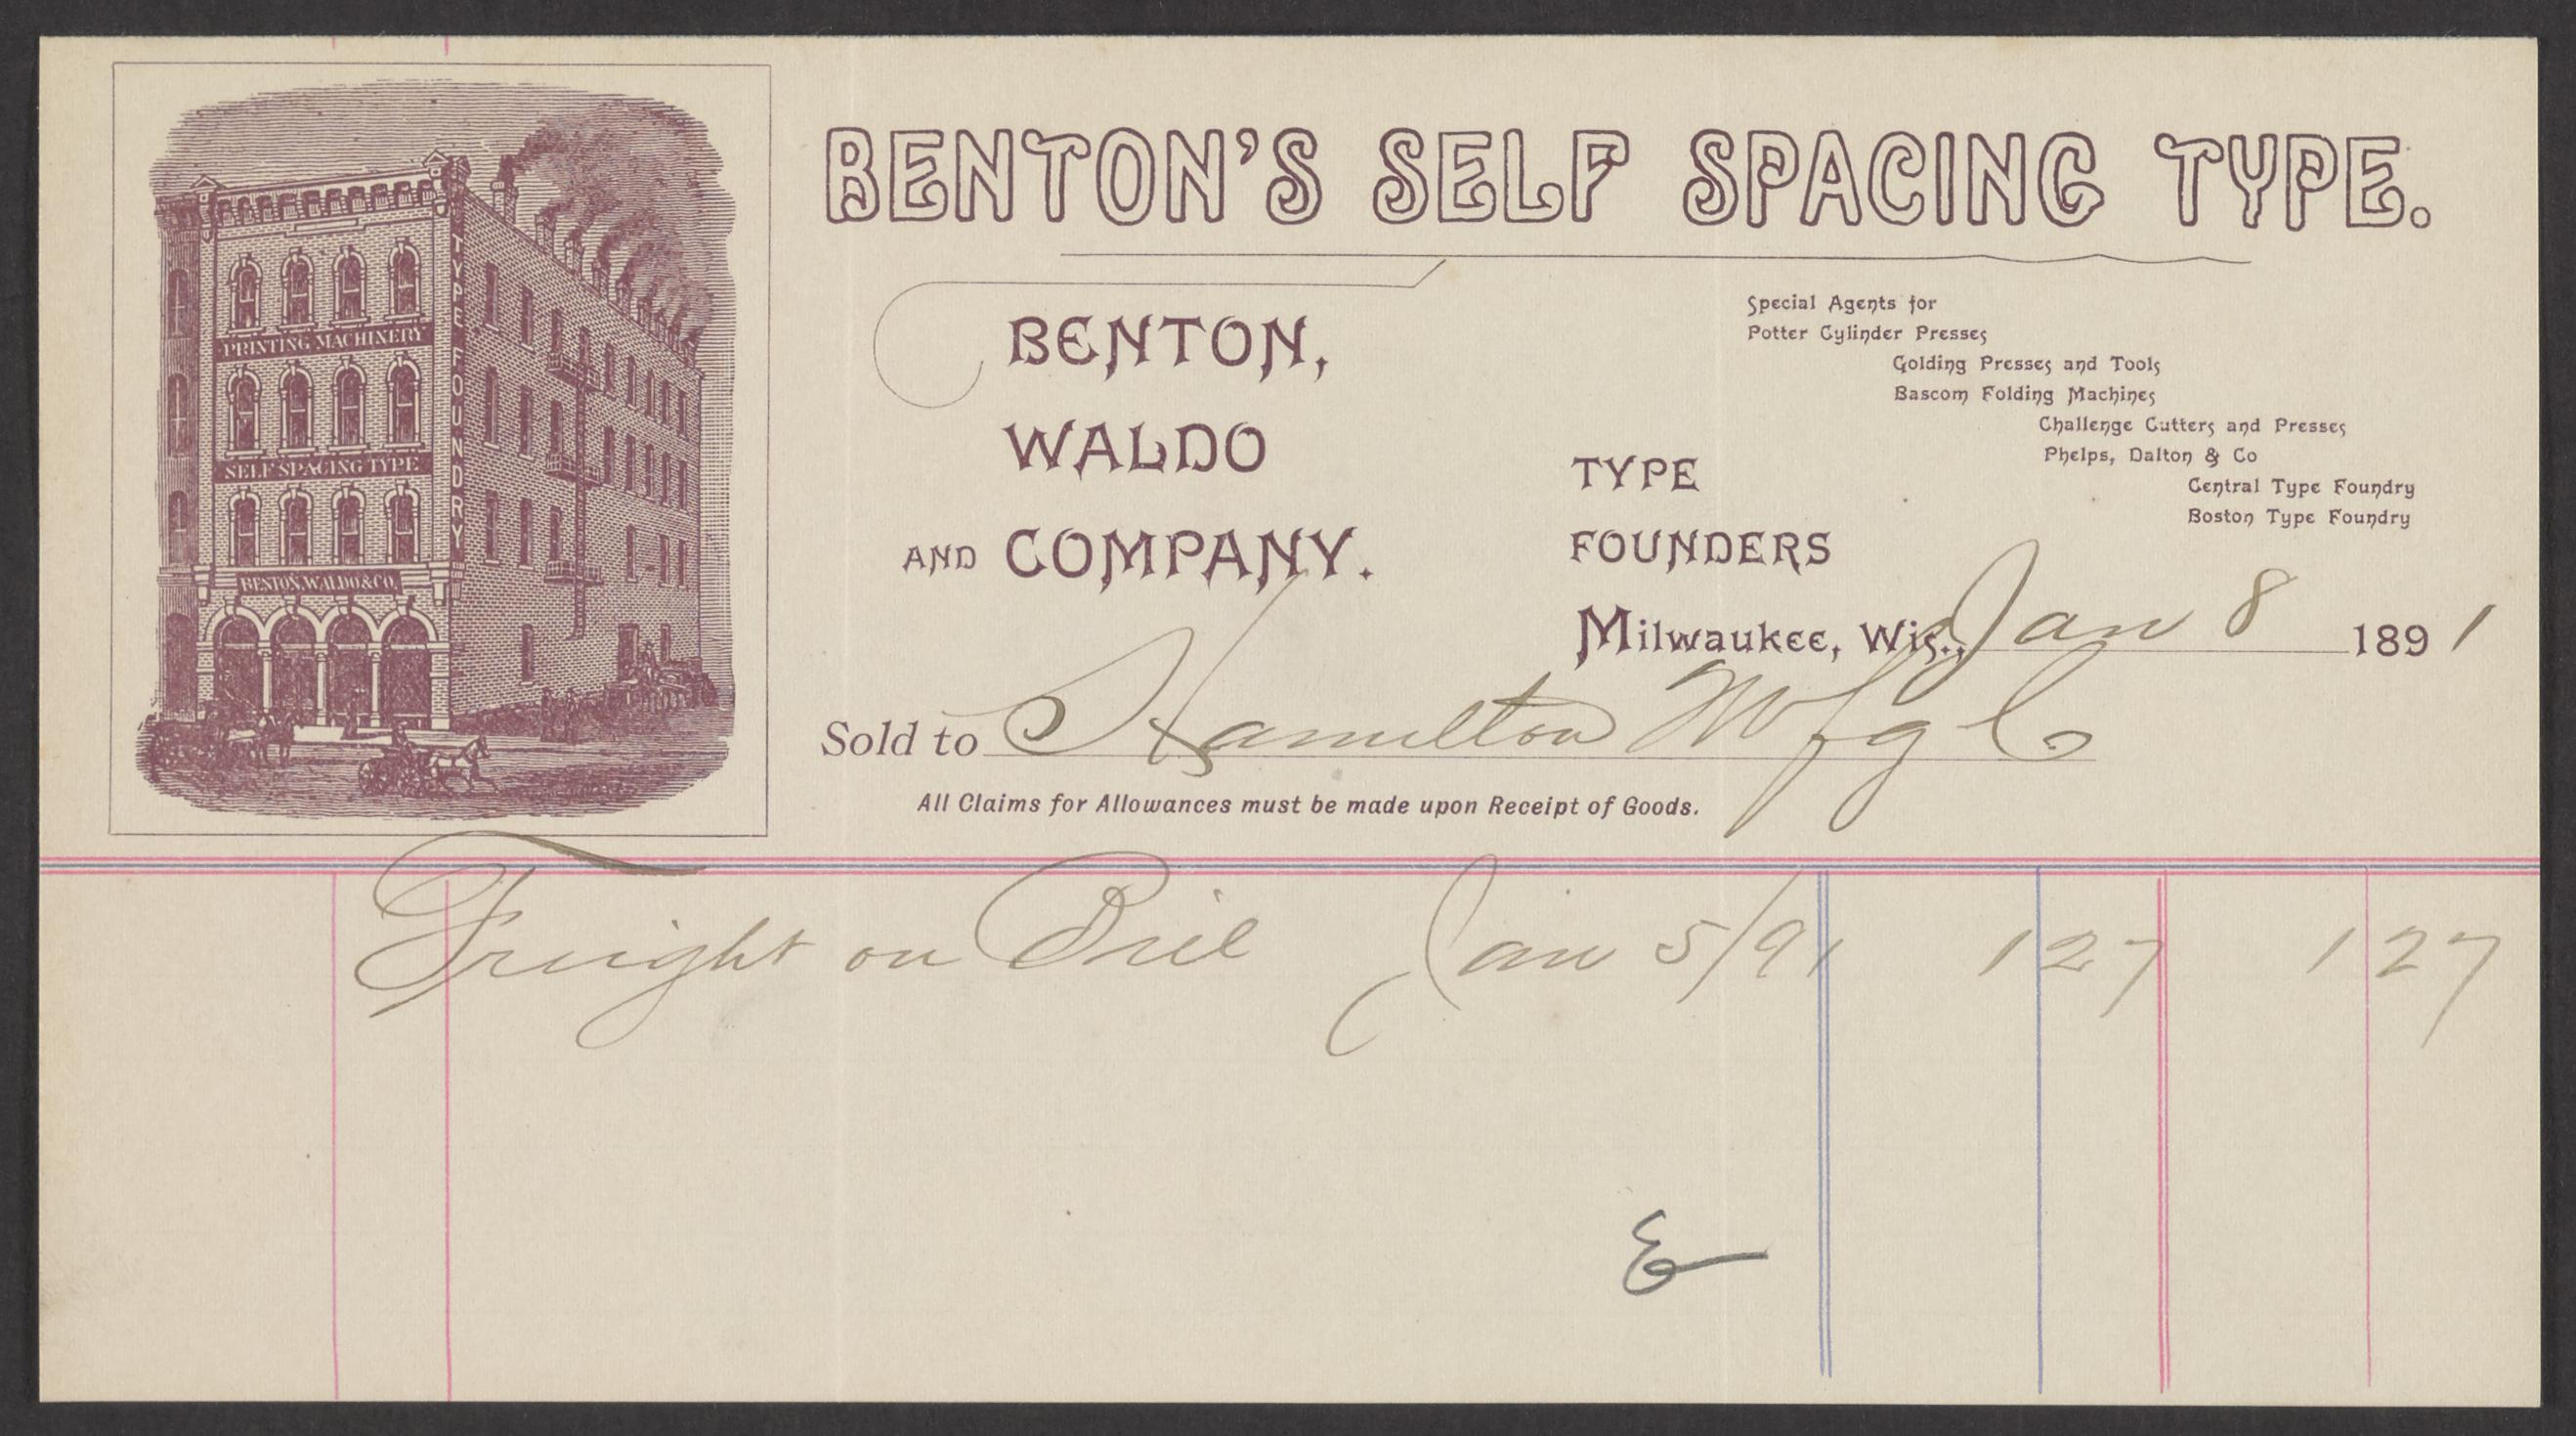 BENTON'S SELF SPACING TYPE.
PRINTING MACHINERY
SELF SPACING TYPE
BENTON, WALDO & CO.
TYPE FOUNDRY
BENTON,
WALDO
AND COMPANY.
TYPE
FOUNDERS
Special Agents for
Potter Cylinder Presses
Golding Presses and Tools
Bascom Folding Machines
Challenge Cutters and Presses
Phelps, Dalton & Co
Central Type Foundry
Boston Type Foundry
Milwaukee, Wis., Jan 8 1891
Sold to Hamilton Mfg Co
All Claims for Allowances must be made upon Receipt of Goods.
Freight on Jan 5/91 1 27 1 27